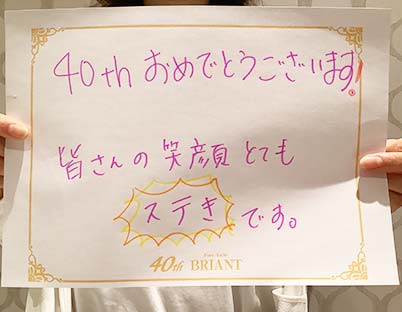 40th おめでとうございます!
皆さんの 笑顔 とても
ステき です。
40th BRIANT